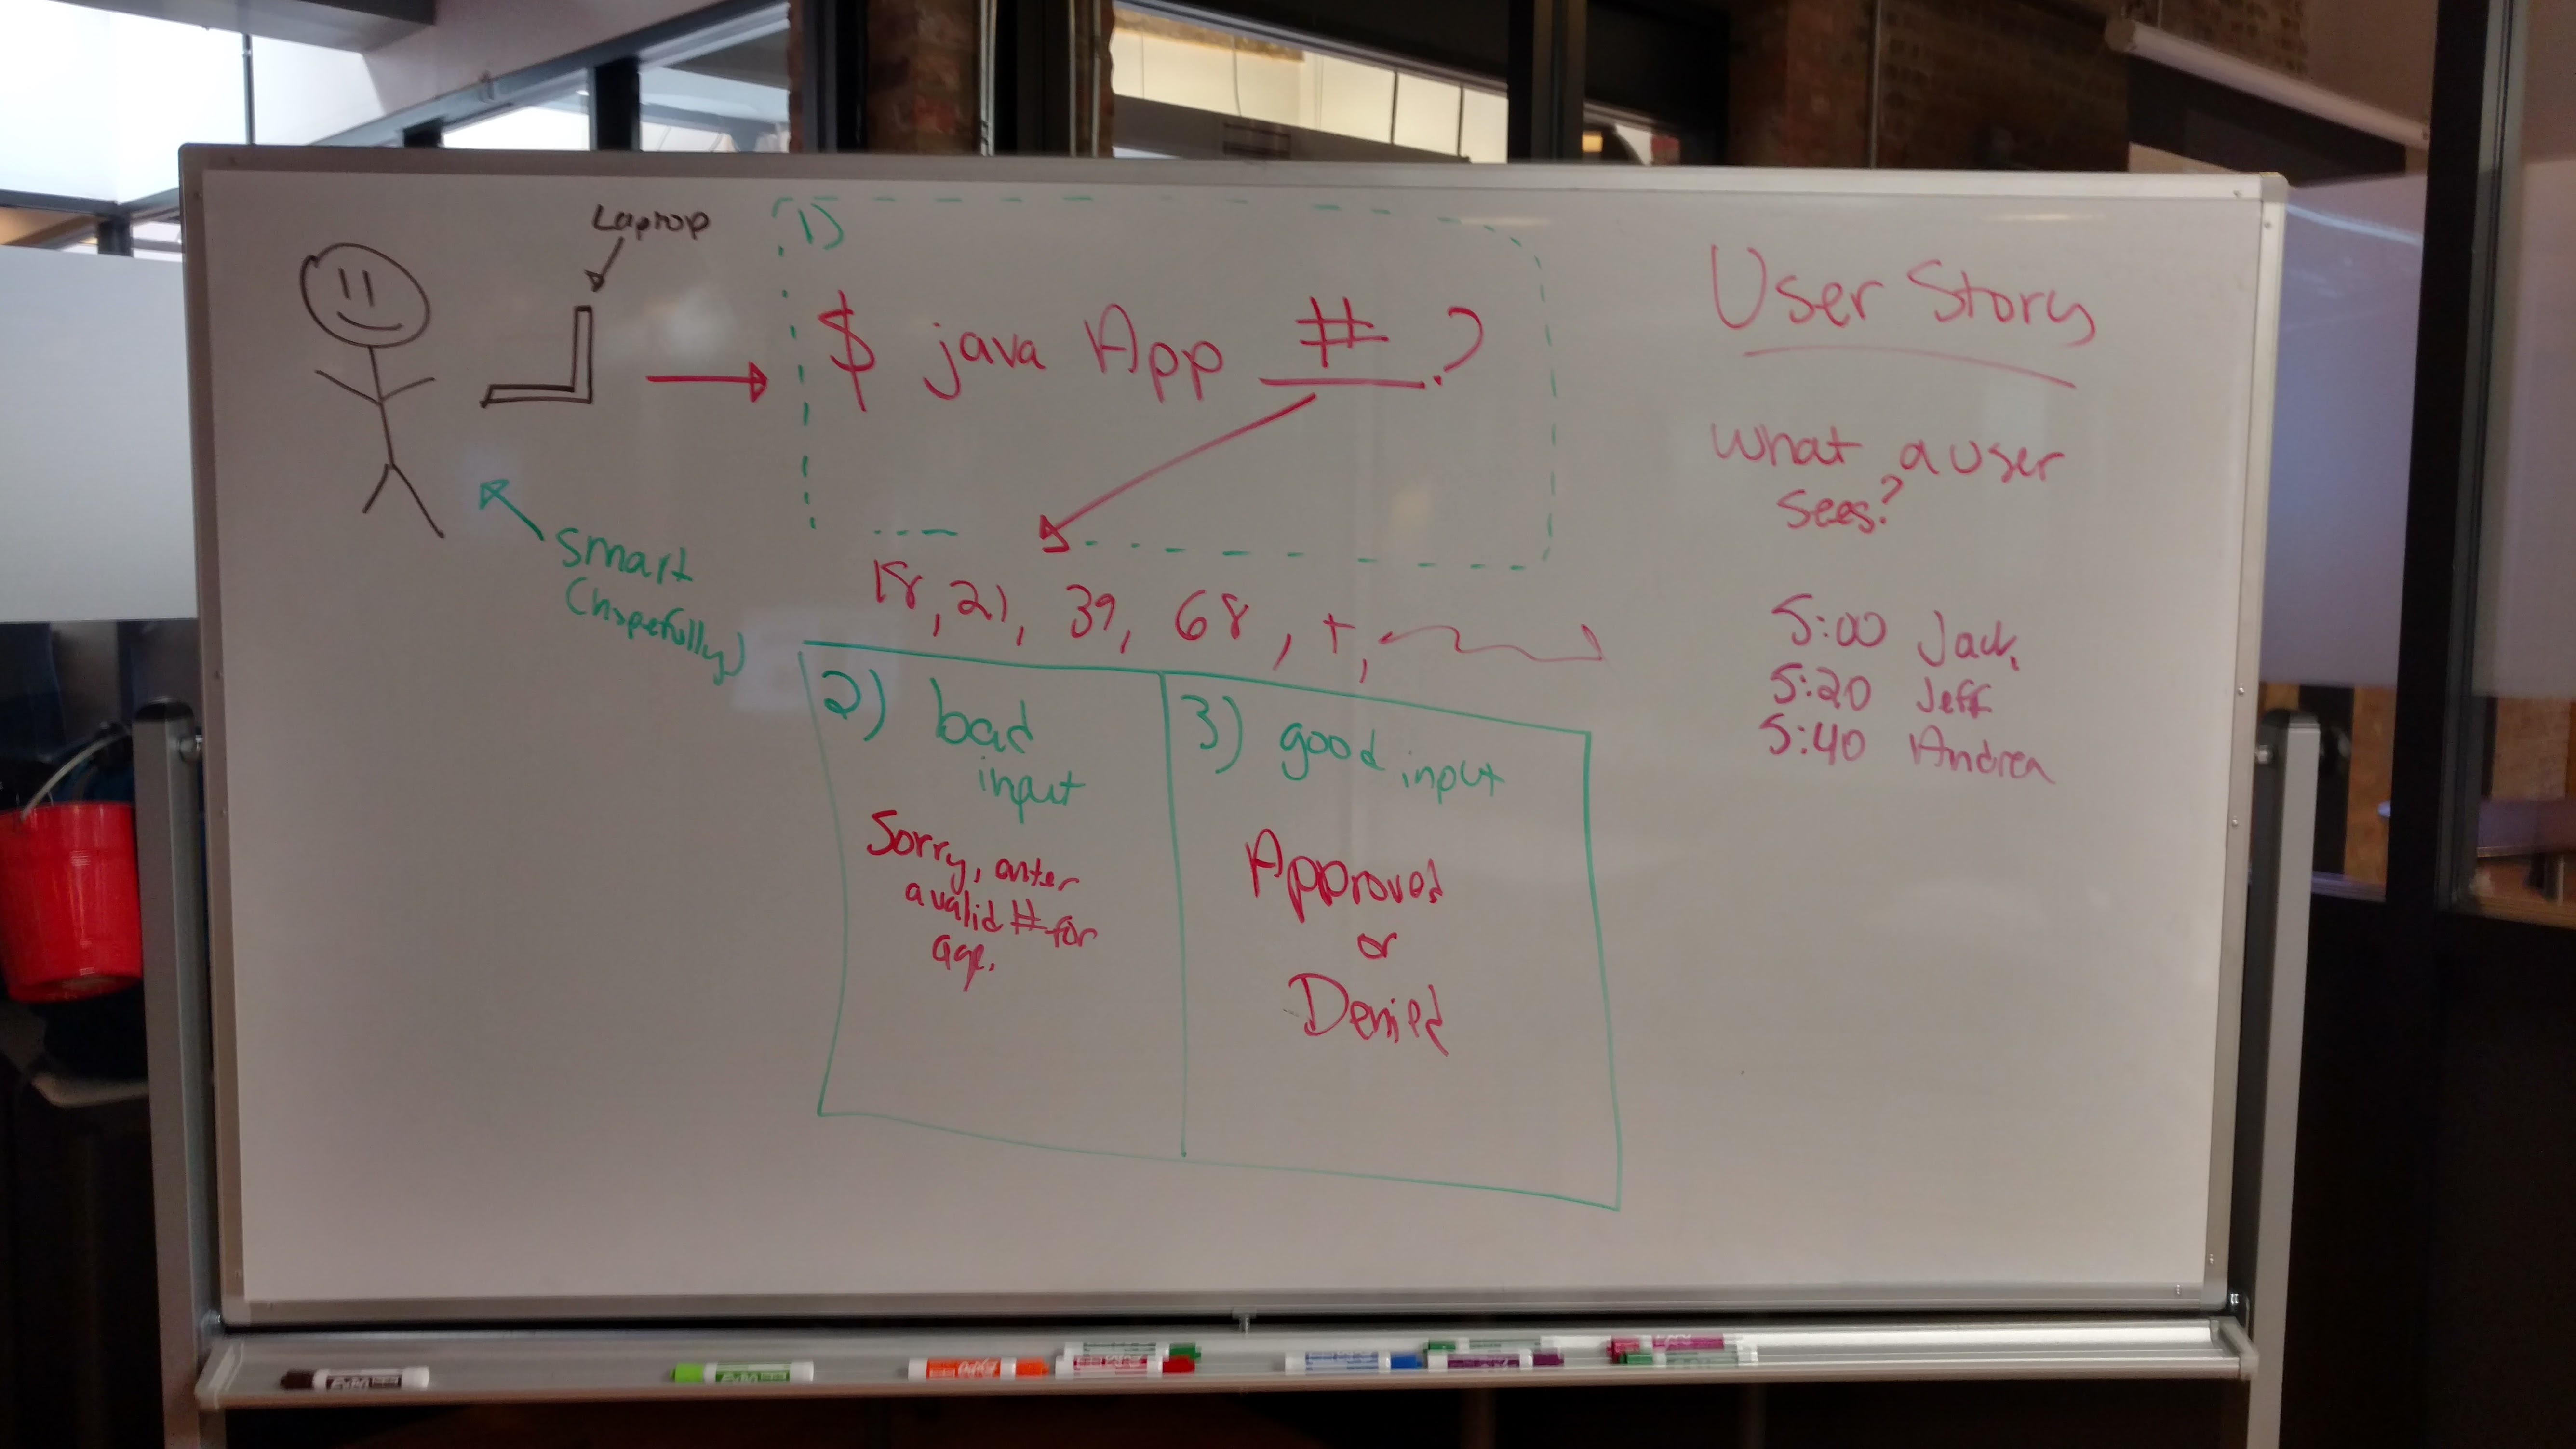 Laptop
smart
(hopefully)
1)
$ java App # ?
18, 21, 39, 68, +,
2) bad
input
Sorry, enter
a valid # for
age.
3) good input
Approved
or
Denied
User Story
what a user
sees?
5:00 Jack
5:20 Jeff
5:40 Andrea